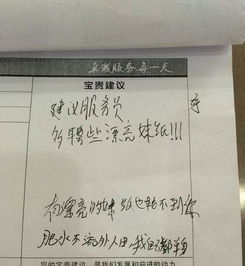 真诚服务每一天
宝贵建议
建议服务员
多聘些漂亮妹纸!!!
有漂亮的妹纸也轮不到你
肥水不流外人田我自己都
您的宝贵建议,是我们发展和前进的动力